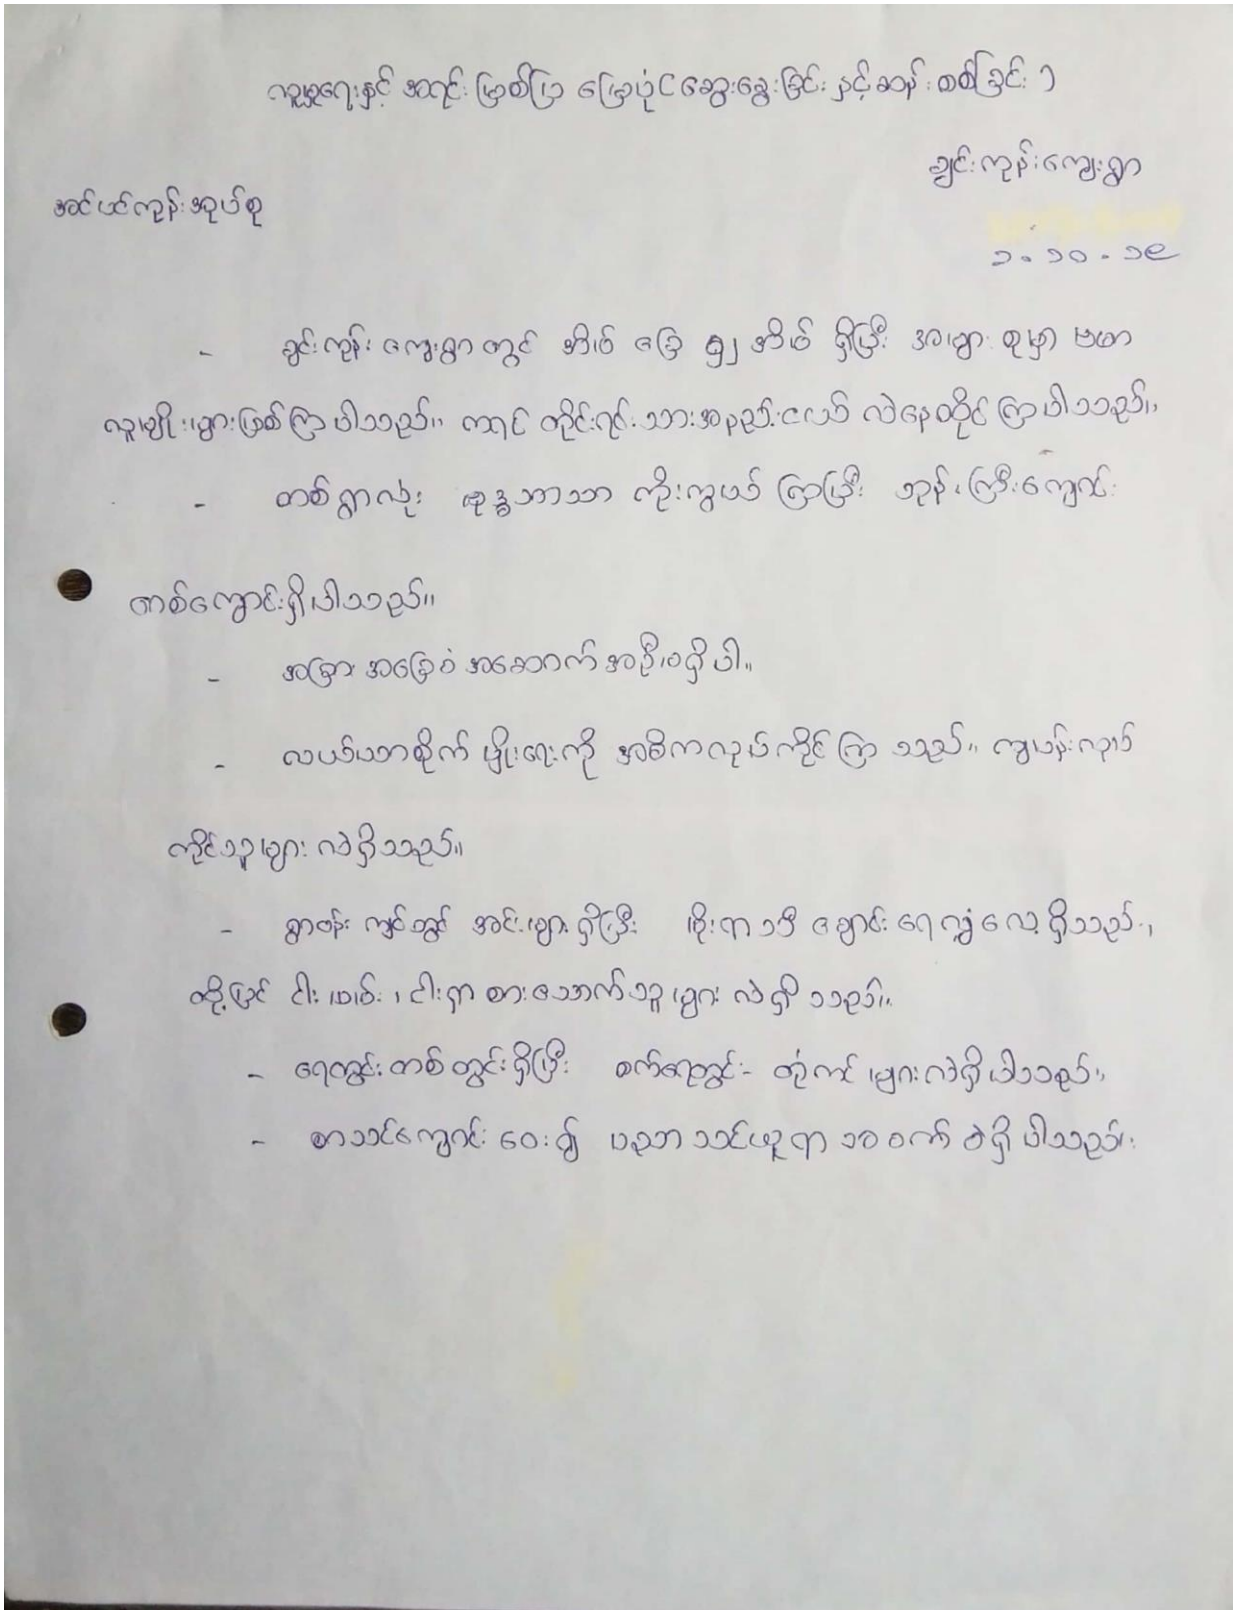 လူမှုရေးနှင့် အရင်းမြစ်ပြ မြေပုံ ဆွေးနွေးခြင်း နှင့်ဆန်းစစ်ခြင်း ၁
ချင်းကုန်းကျေးရွာ
အင်ပင်ကုန်းအုပ်စု
၁.၁၀.၁၉
- ချင်းကုန်း ကျေးရွာတွင် အိမ် ခြေ ၅၂ အိမ် ရှိပြီး အများ စုမှာ ဗမာ
လူမျိုးများဖြစ်ကြပါသည်။ ကရင် တိုင်းရင်းသားအနည်းငယ် လဲနေထိုင်ကြပါသည်။
- တစ်ရွာလုံး ဗုဒ္ဓဘာသာ ကိုးကွယ် ကြပြီး ဘုန်းကြီးကျောင်း
တစ်ကျောင်းရှိပါသည်။
- အခြား အခြေခံ အဆောက်အဦးမရှိပါ။
- လယ်ယာစိုက် မျိုးရေးကို အဓိကလုပ်ကိုင်ကြ သည်။ ကျပန်းလုပ်
ကိုင်သူများ လဲရှိသည်။
- ရွာဝန်း ကျင်တွင် အင်းများ ရှိပြီး မိုးရာသီ ချောင်းရေလျှံလေ့ရှိသည်။
ထို့ပြင် ငါးဖမ်း၊ ငါးရှာ စားသောက်သူများ လဲရှိ သည်။
- ရေတွင်းတစ်တွင်းရှိပြီး စက်ရေတွင်း- တုံကင်များလဲရှိပါသည်။
- စာသင်ကျောင်း ဝေး၍ ပညာသင်ယူရာ အခက် ခဲရှိပါသည်။